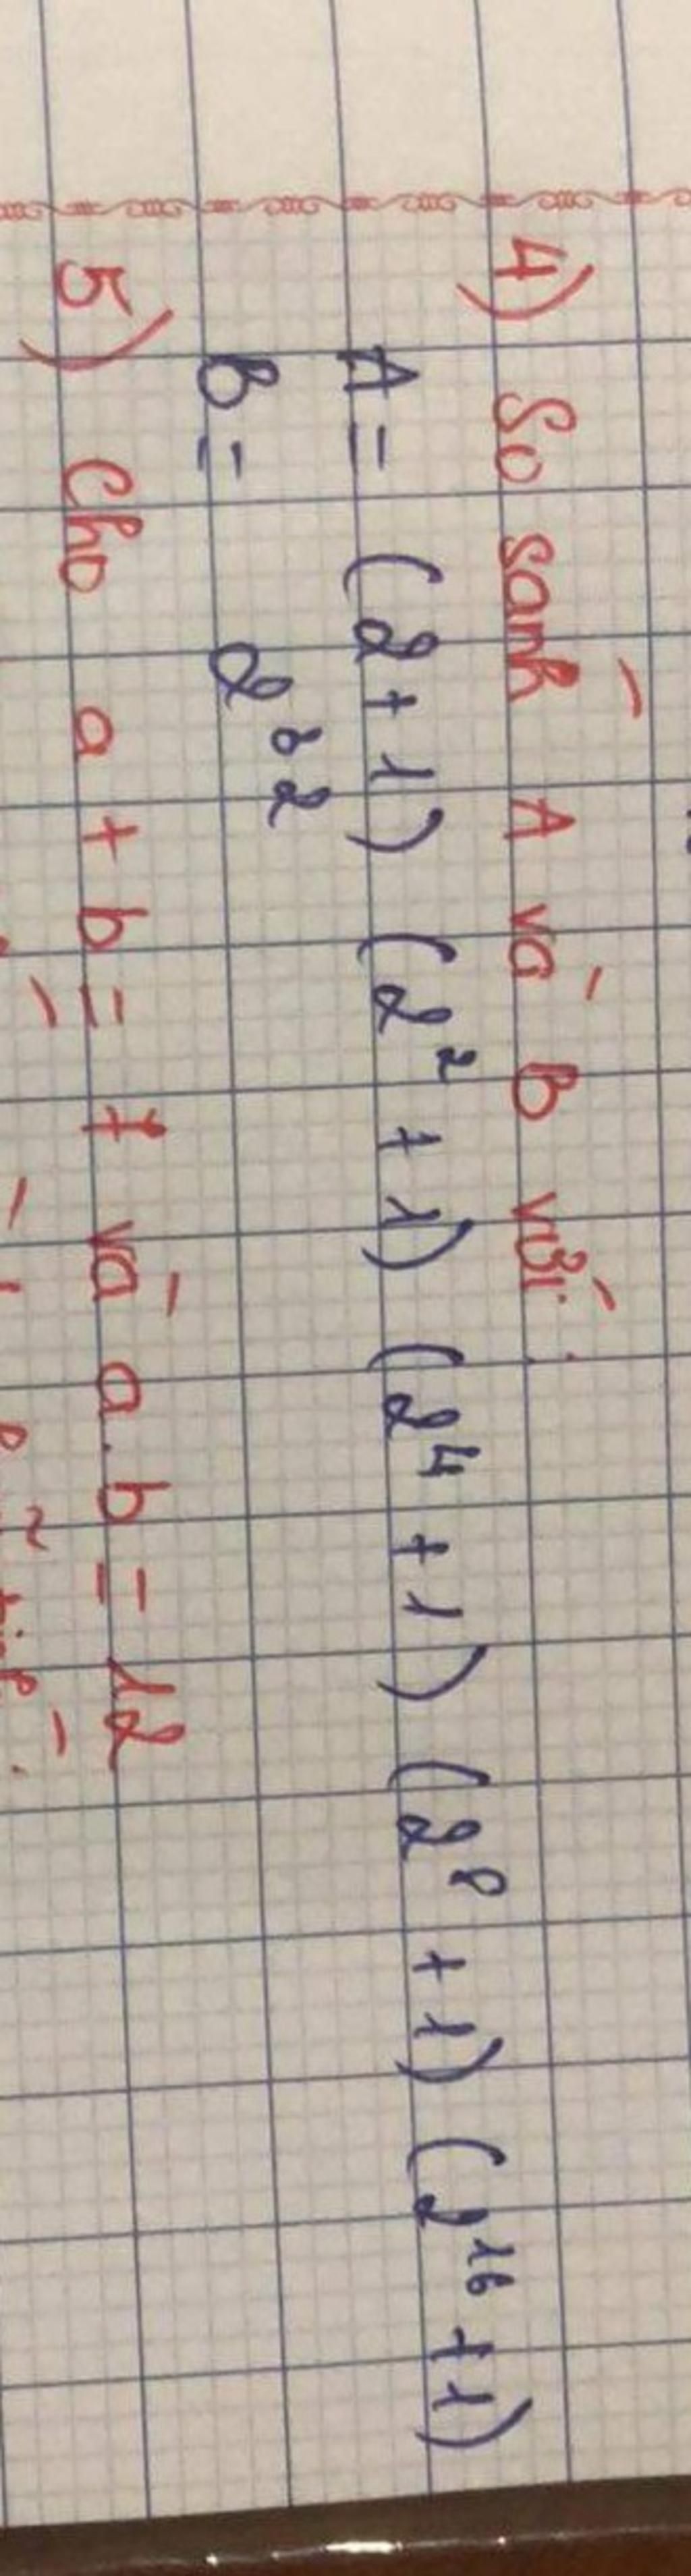 4) So sánh A và B với:
A = (2 + 1) (2² + 1) (2⁴ + 1) (2⁸ + 1) (2¹⁶ + 1)
B = 2³²
5) Cho a + b = 7 và a.b = 12